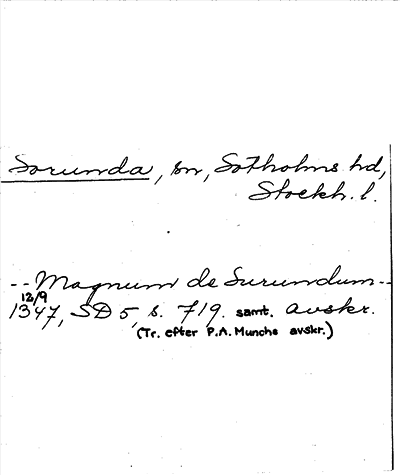 Sorunda, sn, Sotholms hd,
Stockh. l.
-- Magnum de Surundum --
12/9
1347, SD 5, s. 719. samt. avskr.
(Tr. efter P.A. Munchs avskr.)